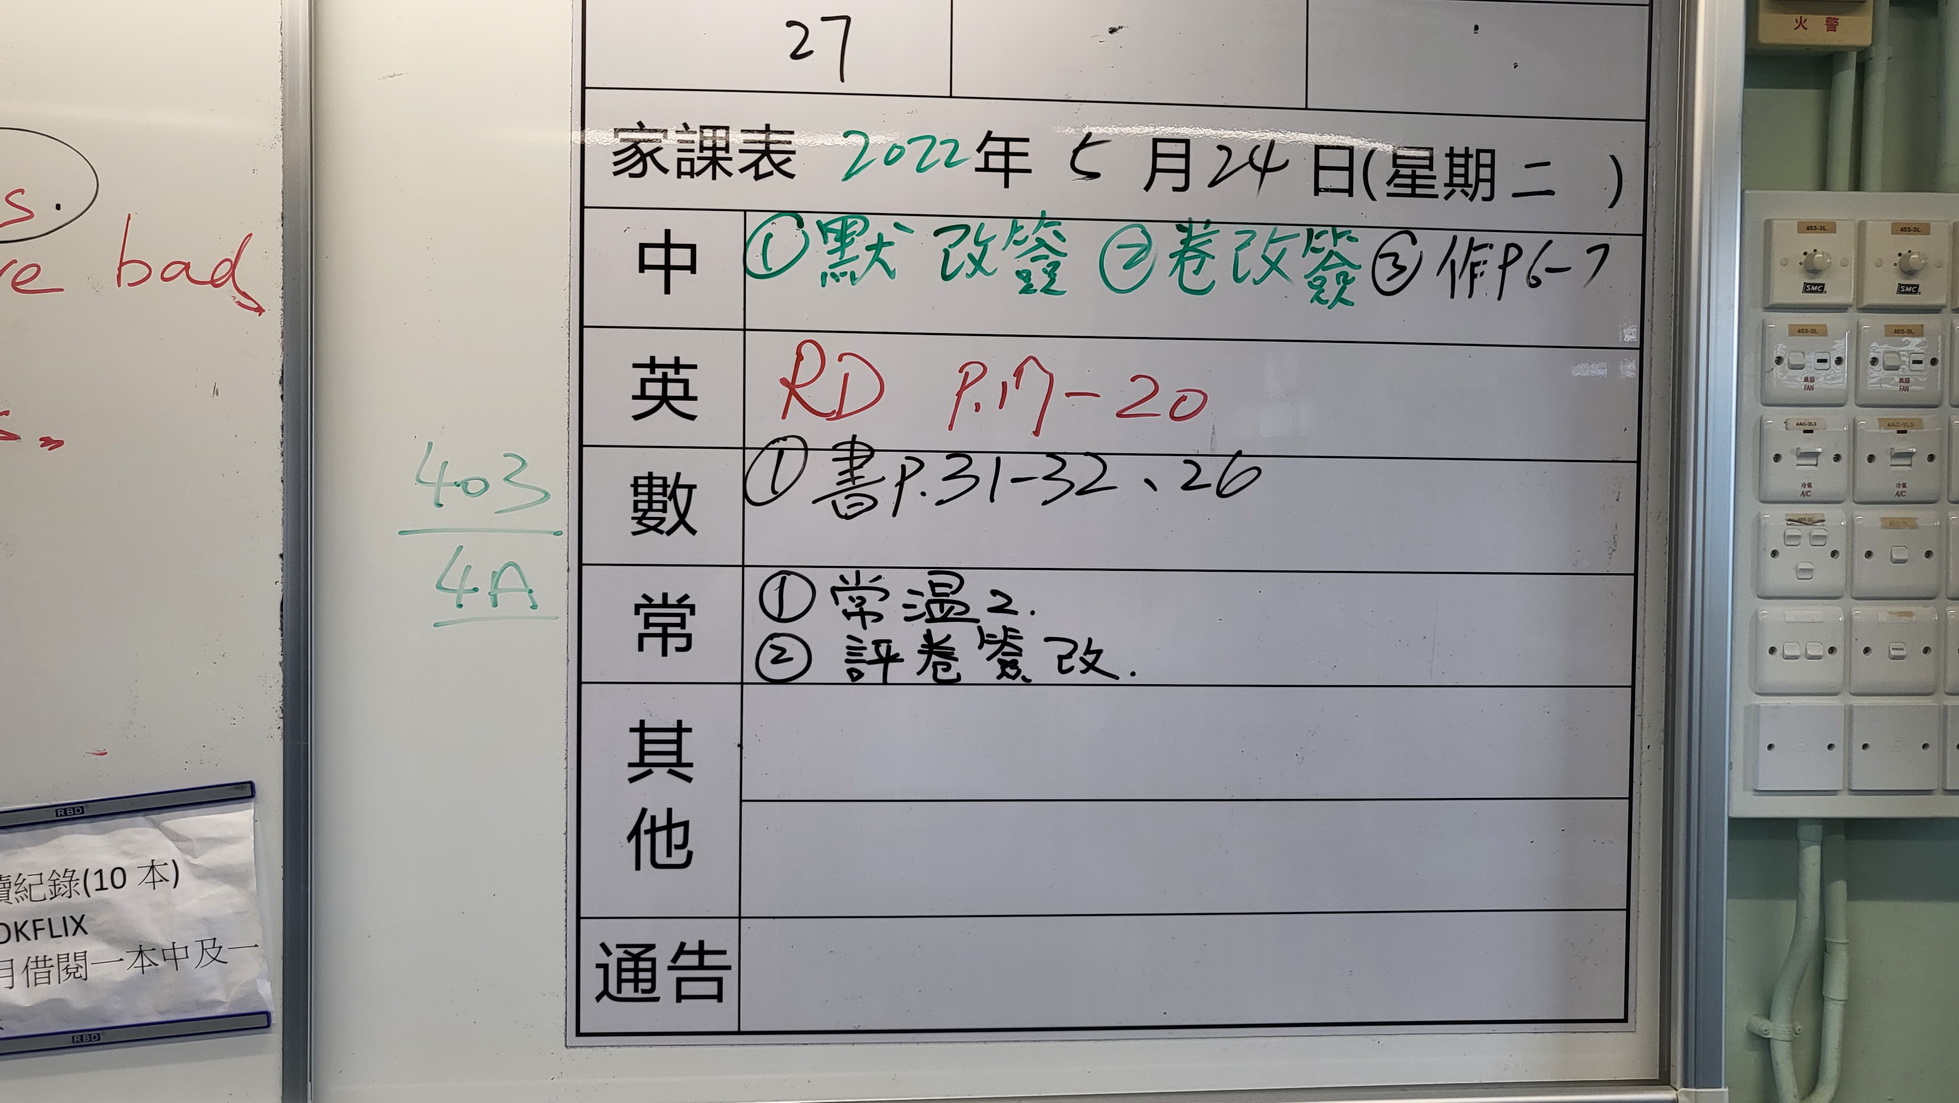 27
家課表 2022年 5月24日(星期二 )
中 ①默 改簽 ②卷改簽 ③作P6-7
英 RD P.17-20
數 ①書P.31-32、26
常 ①常温2.
②評卷簽改.
其他
通告
403
4A
s.
re bad
RBD
讀紀錄(10 本)
OKFLIX
月借閱一本中及一
RBD
火警
403-3L
403-3L
SMC
SMC
403-3L
403-3L
風扇
FAN
風扇
FAN
冷氣
A/C
冷氣
A/C